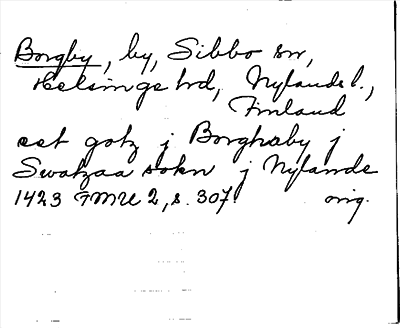 Borgby, by, Sibbo sn,
Helsinge hd, Nylands l.,
Finland
eet gotz j Borghaby j
Swatzaa sokn j Nylande
1423 FMU 2, s. 307. orig.